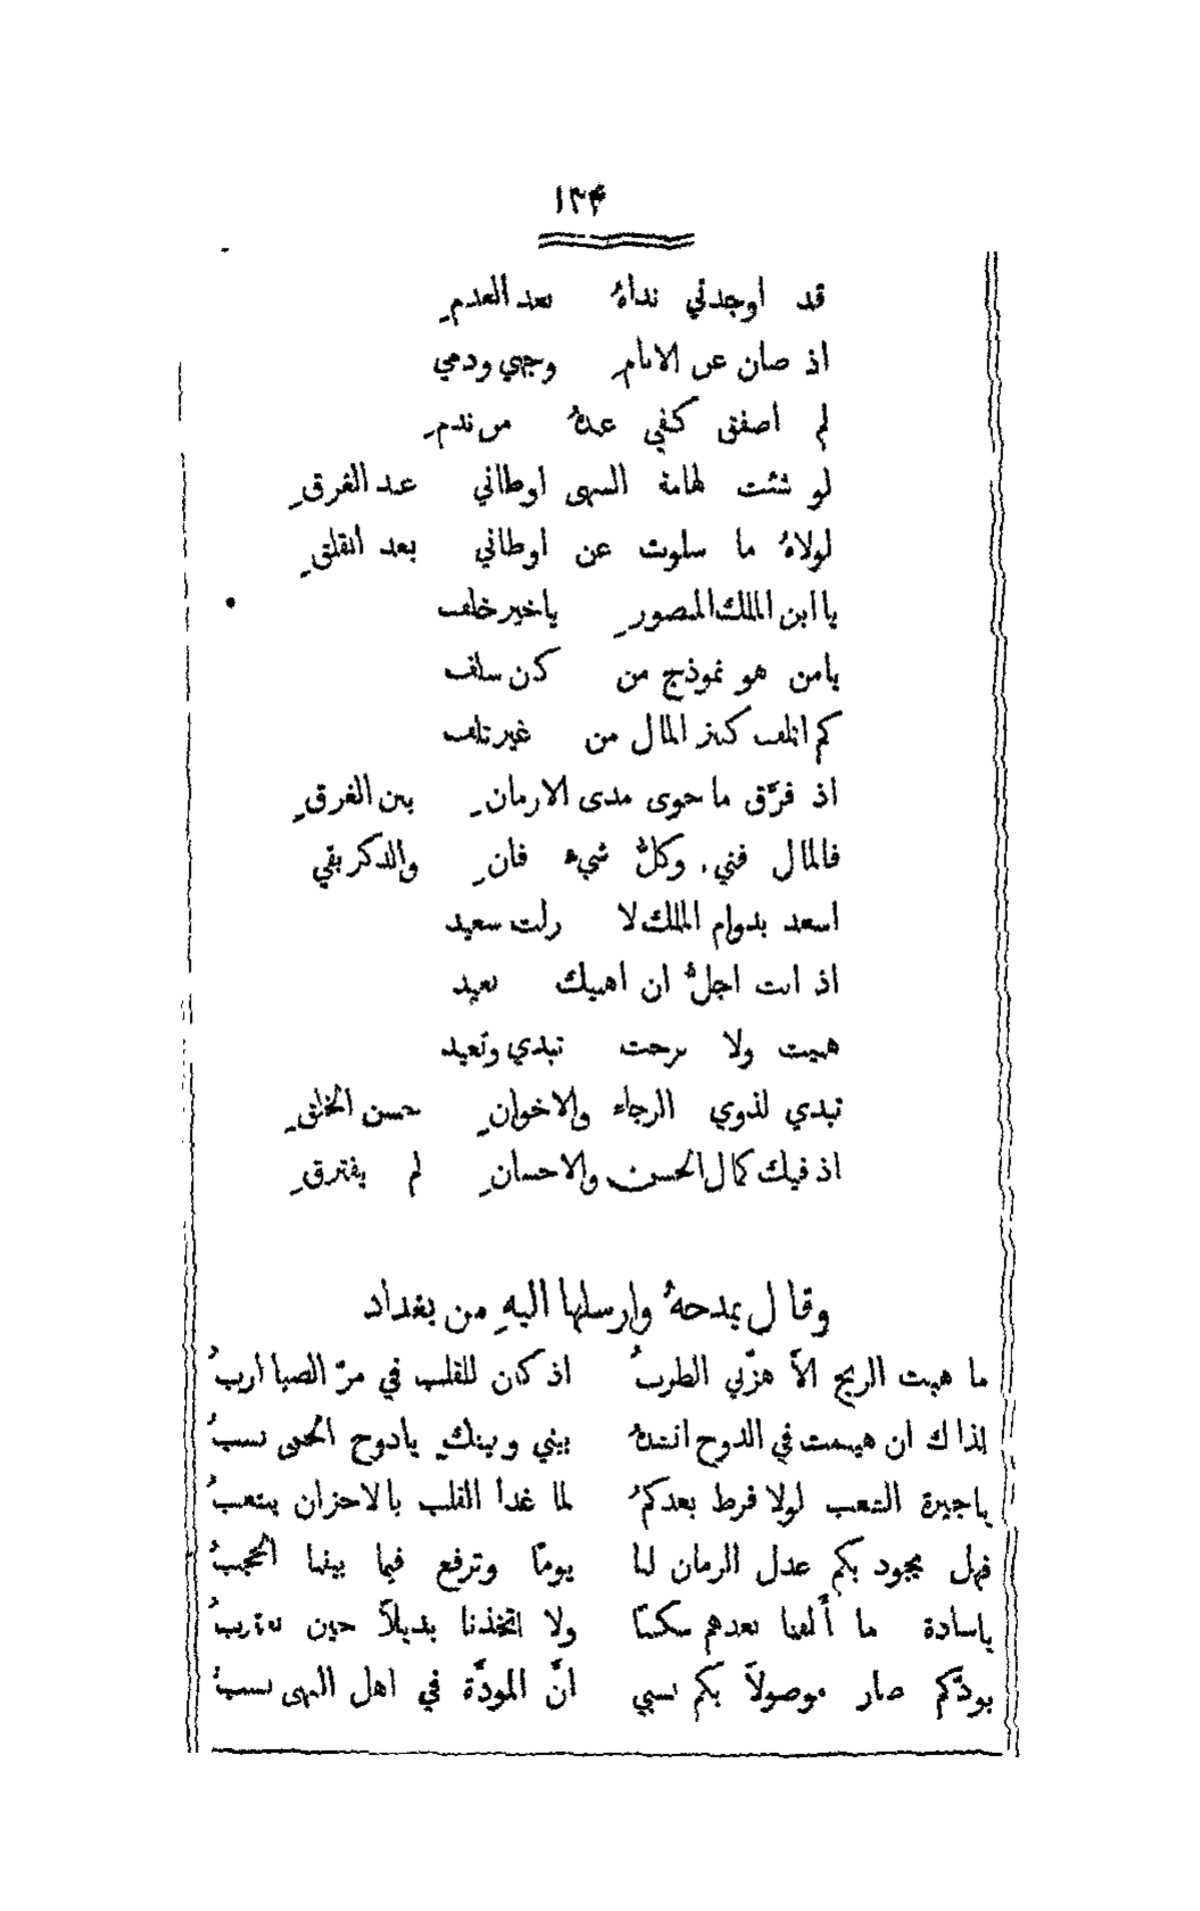 ١٣٤
قد اوجدني نداهُ بعد العدمِ
اذ صان عن الانامِ وجهي ودمي
لم اصفق كفي عندهُ من ندمِ
لو شئت لهامة السهى اوطاني عند الفرقِ
لولاهُ ما سلوت عن اوطاني بعد القلقِ
يا ابن الملك المنصورِ يا خير خلف
يامن هو نموذج من كان سلف
كم اتلف كنز المال من غير تلف
اذ فرَّق ما حوى مدى الازمانِ بين الفرقِ
فالمال فني، وكلُّ شيءٍ فانِ والذكر بقي
اسعد بدوام الملك لا زلت سعيد
اذ انت اجلُّ ان اهنيك بعيد
هنيت ولا برحت تبدي وتعيد
تبدي لذوي الرجاء والاخوانِ حسن الخلقِ
اذ فيك كمال الحسن والاحسانِ لم يفترقِ
وقال يمدحهُ وارسلها اليهِ من بغداد
ما هبت الريح الَّا هزّني الطربُ اذ كان للقلب في مرّ الصبا اربُ
لذاك ان هيمت في الدوح انشدهُ بيني وبينكِ يادوح الحمى نسبُ
ياجيرة الشعب لولا فرط بعدكمُ لما غدا القلب بالاحزان ينتعبُ
فهل يجود بكم عدل الزمان لنا يومًا وترفع فيما بيننا الحجبُ
ياسادة ما أَلفنا بعدهم سكنًا ولا اتخذنا بديلاً حين نغتربُ
بودّكم صار موصولاً بكم نسبي انَّ المودَّة في اهل النهى نسبُ